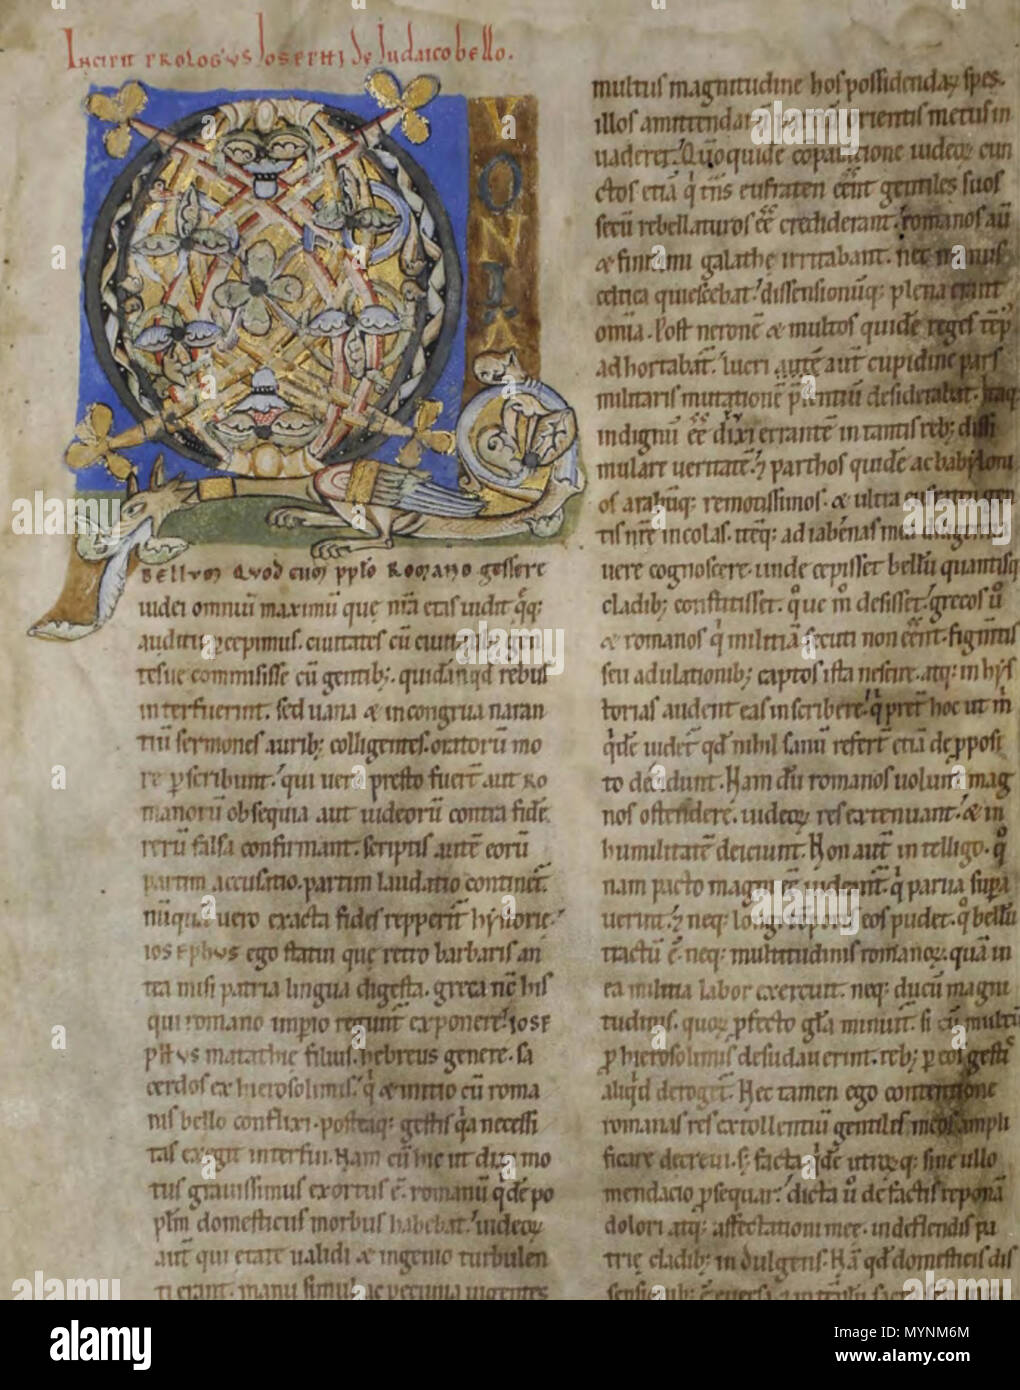 Incipit prologus Iosephi de Iudaico bello.
QVONIA
bellum quod cum pplo Romano gessere
iudei omniū maximū que nr̄a etas uidit q̄q;
auditu pcepimus. ciuitates cū ciuitatib; gen
tesue commisisse cū gentib;. quidā n̄ qd rebus
interfuerint. sed uana & incongrua narran
tiū sermones aurib; colligentes. oratorū mo
re pscribunt. qui uero presto fuer̄t aut Ro
manorū obsequia aut iudeorū contra fidē
rerū falsa confirmant. scriptis autē eorū
partim accusatio. partim laudatio continet̄.
nūquā uero exacta fides repperit̄ hystorie.
iosephus ego statui que retro barbaris an
tea misi patria lingua digesta. greca nc̄ his
qui romano impio regunt̄ exponere. iose
phus matathie filius. hebreus genere. sa
cerdos ex hierosolimis. q̄ & initio cū roma
nis bello conflixi. posteaq; gestis q̄a necessi
tas exegit interfui. Nam cū hic ut dixi mo
tus grauissimus exortus ē. romanū q̄de po
plm̄ domesticus morbus habebat. iudeoꝝ
aut̄ qui etate ualidi & ingenio turbulen
ti erant. manu simul ac pecunia uigentes
multus magnitudine hos possidendaꝝ spes.
illos amittendarū partiū orientis metus in
uaderet. Quoquidē
ctos etiā q̄ trans eufraten eēnt gentiles suos
secū rebellaturos eē crediderant. romanos aū
& finitimi galathe irritabant. nec minus
celtica quiescebat. dissensionūq; plena erant
omīa. Post neronē & multos quidē reges tēp̄
ad hortabat̄. lucri autē aut cupidine pars
militaris mutationē p̄sentiū desiderabat. Itaq;
indignū eē duxi errantē in tantis reb; dissi
mulare ueritatē. & parthos quidē ac babyloni
os arabūq; remotissimos. & ultra eufraten gen
tis nr̄e incolas. itēq; adiabenos mea diligentia
uere cognoscere. unde cepisset bellū quantisq;
cladib; constitisset. quoue m̄ desisset. grecos ū
& romanos q̄ militiā secuti non eēnt. figm̄tis
seu adulationib; captos ista nescire. atq; in hys
torias audent eas inscribere.
q̄de uidet̄ qd nihil sanū refer̄t etiā de pposi
to decidunt. Nam dū romanos uolunt mag
nos ostendere. iudeoꝝ res extenuant. & in
humilitatē deiciunt. Non aut̄ intelligo. q̄o
nam pacto magni eē uideant̄. q̄ parua supa
uerint. & neq; longi tēporis eos pudet. q̄ bellū
tractū ē. neq; multitudinis romanoꝝ. quā in
ea militia labor exercuit. neq; ducū magni
tudinis. quoꝝ pfecto gl̄a minuit̄. si cū multū
p hierosolimis desudauerint. reb; p eos gestis
aliqd deroget̄. Nec tamen ego contentione
romanas res extollentiū gentiles meos ampli
ficare decreui. s; facta q̄de utroꝝq; sine ullo
mendacio psequar. dicta ū de factis reponā
dolori atq; affectationi mee. in deflendis pa
trie cladib; indulgens. Nā qd domesticis dis
alamy
MYNM6M
www.alamy.com